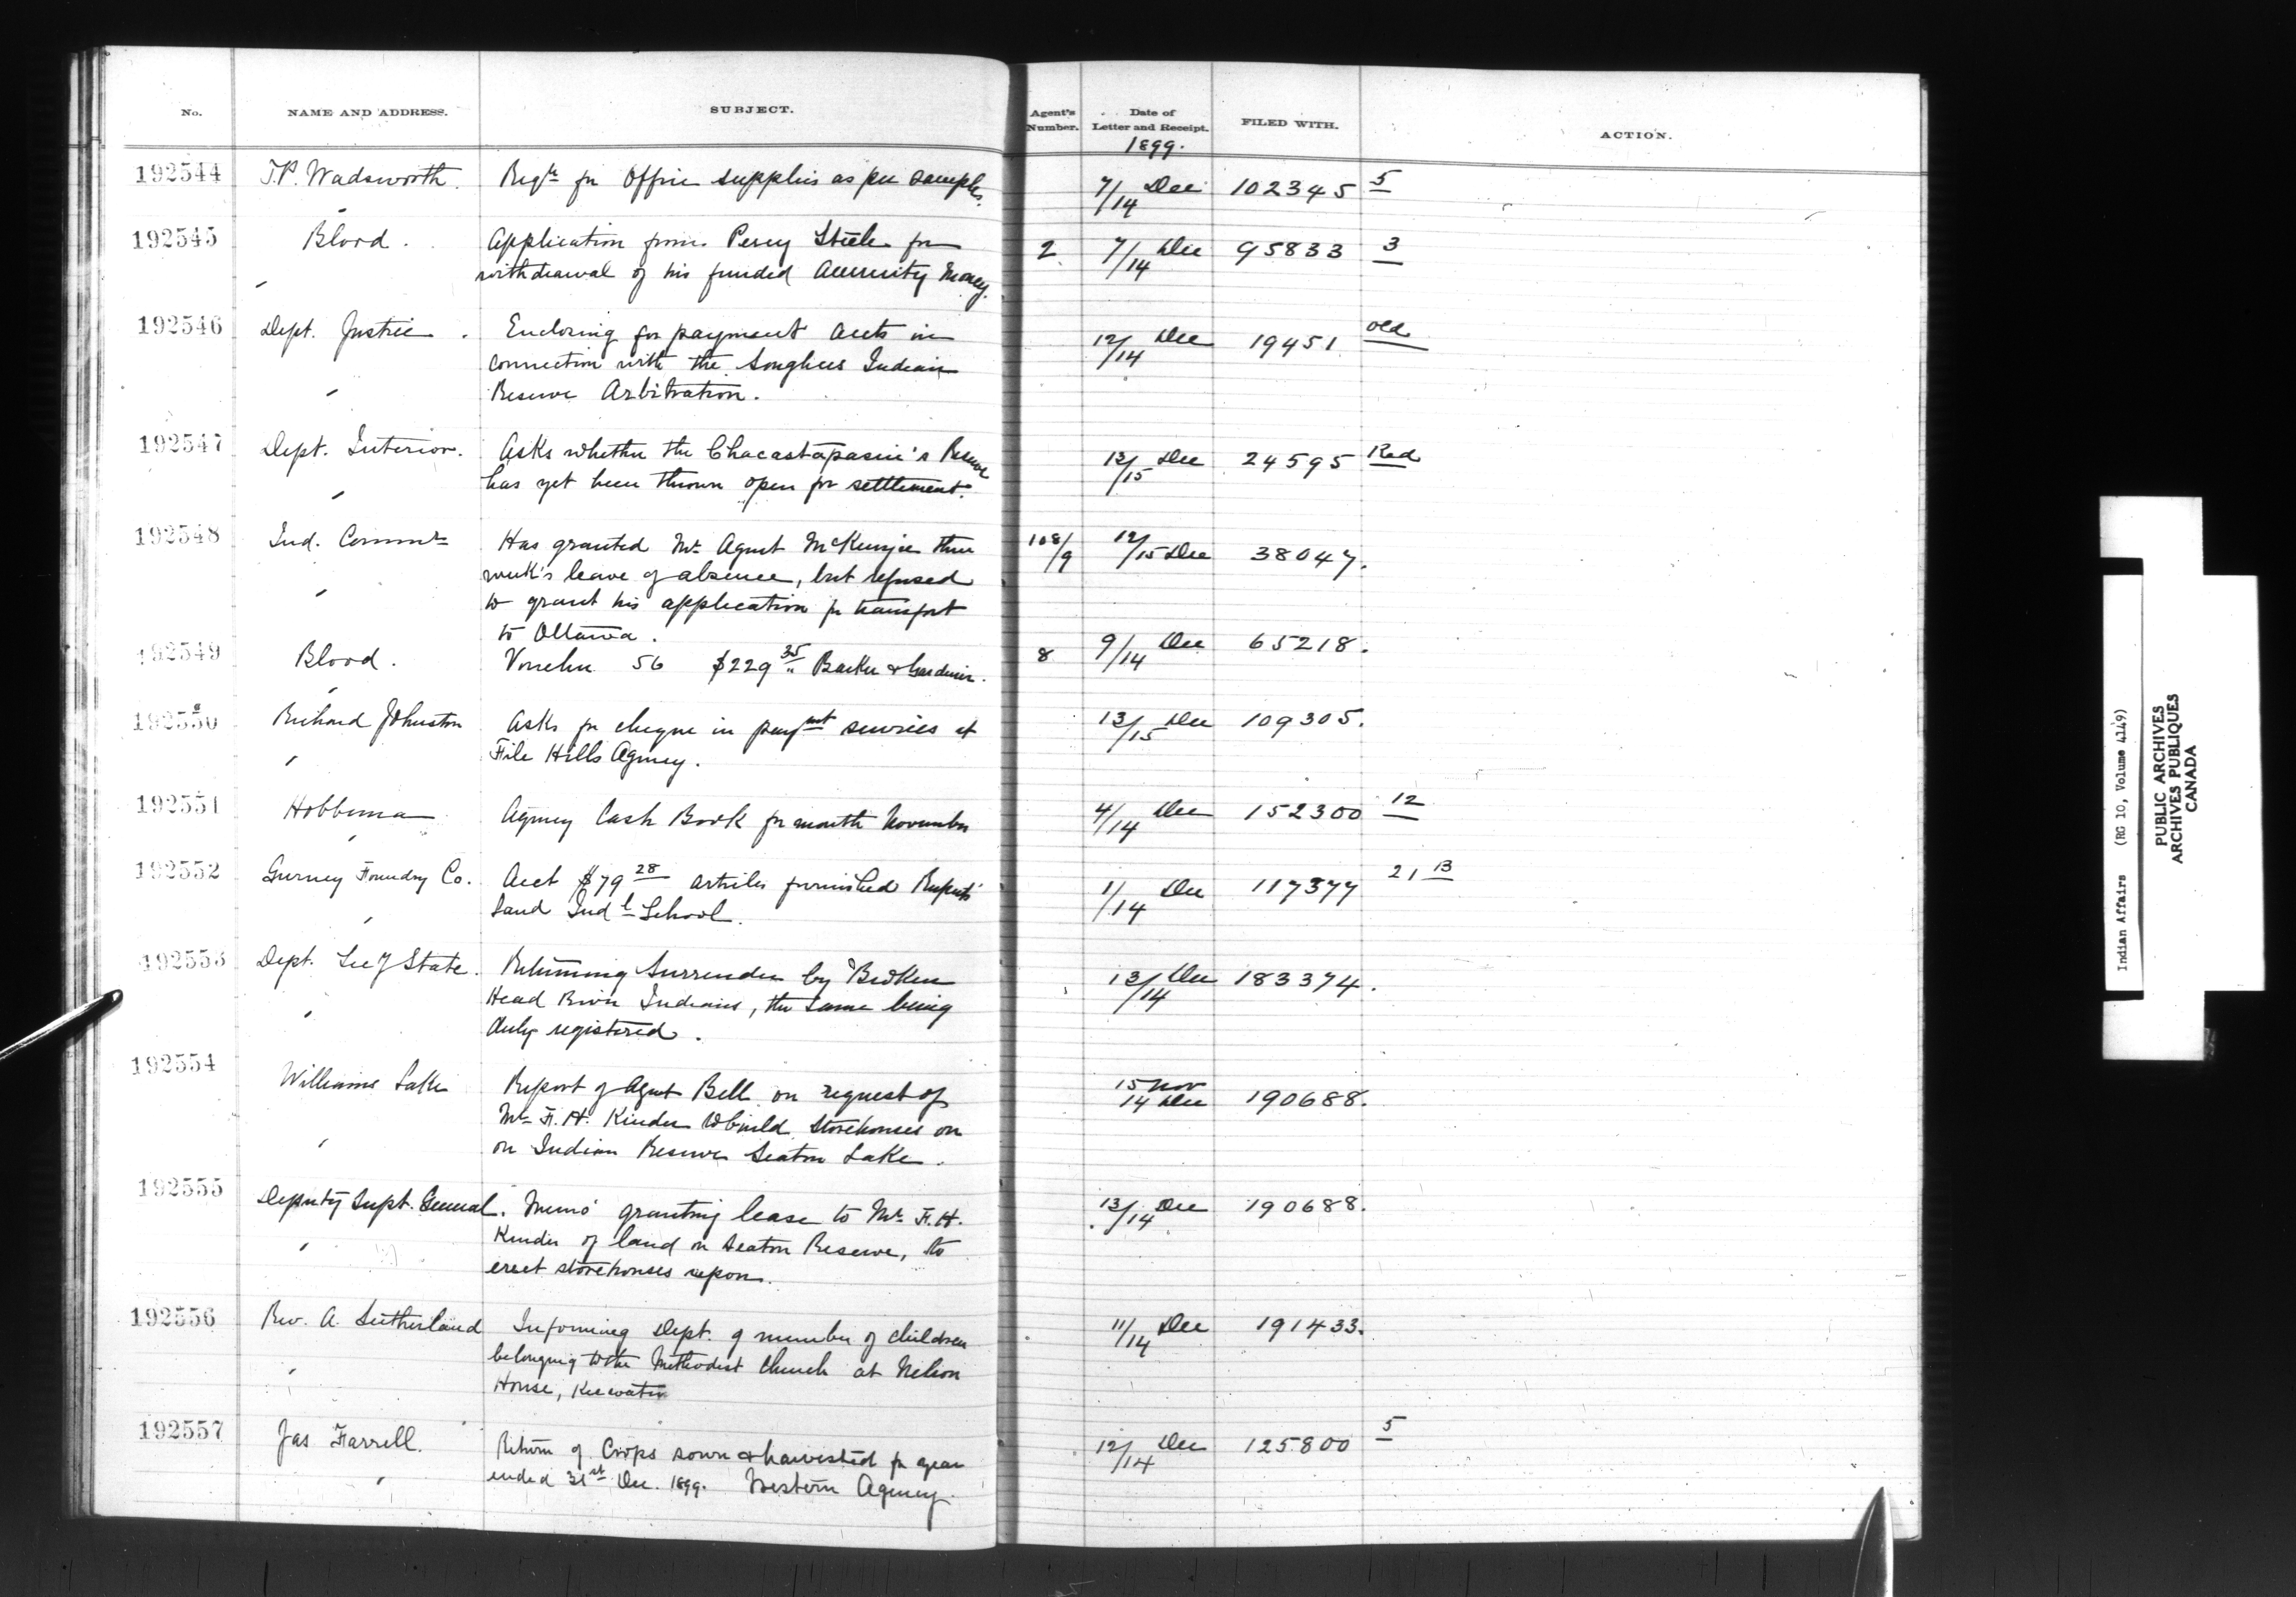 No. NAME AND ADDRESS. SUBJECT. Agent's Number. Date of Letter and Receipt. FILED WITH. ACTION.
1899.
192544 T.P. Wadsworth. Reqn for Office supplies as per sample. 7/14 Dec 102345 5
192545 Blood. Application from Percy Steele for 2 7/14 Dec 95833 3
withdrawal of his funded Annuity Money.
192546 Dept. Justice. Enclosing for payment accts in 12/14 Dec 19451 Old
connection with the Songhees Indian
Reserve Arbitration.
192547 Dept. Interior. Asks whether the Chacastapasin's Reserve 13/15 Dec 24595 Red
has yet been thrown open for settlement.
192548 Ind. Commr Has granted Mr Agent McKenzie three 108/9 12/15 Dec 38047.
week's leave of absence, but refused
to grant his application for transport
to Ottawa.
192549 Blood. Voucher 56 $229 35 Barker & Gardiner. 8 9/14 Dec 65218.
192550 Richard Johnston Asks for cheque in paymt services at 13/15 Dec 109305.
File Hills Agency.
192551 Hobbema Agency Cash Book for month November 4/14 Dec 152300 12
192552 Gurney Foundry Co. Acct $79 28 articles furnished Ruperts 1/14 Dec 117377 21 B
Land Indl School.
192553 Dept. Secy State. Returning Surrender by Broken 13/14 Dec 183374.
Head River Indians, the same being
duly registered.
192554 Williams Lake Report of Agent Bell on request of 15 Nov 14 Dec 190688.
Mr F.H. Kinder to build storehouses on
on Indian Reserve Seaton Lake.
192555 Deputy Supt. General. Memo granting lease to Mr F.H. 13/14 Dec 190688.
Kinder of land on Seaton Reserve, to
erect storehouses upon.
192556 Rev. A. Sutherland Informing Dept. of number of children 11/14 Dec 191433.
belonging to the Methodist Church at Nelson
House, Keewatin
192557 Jas Farrell. Return of Crops sown & harvested for year 12/14 Dec 125800 5
ended 31st Dec. 1899. Western Agency.
Indian Affairs (RG 10, Volume 4149)
PUBLIC ARCHIVES
ARCHIVES PUBLIQUES
CANADA